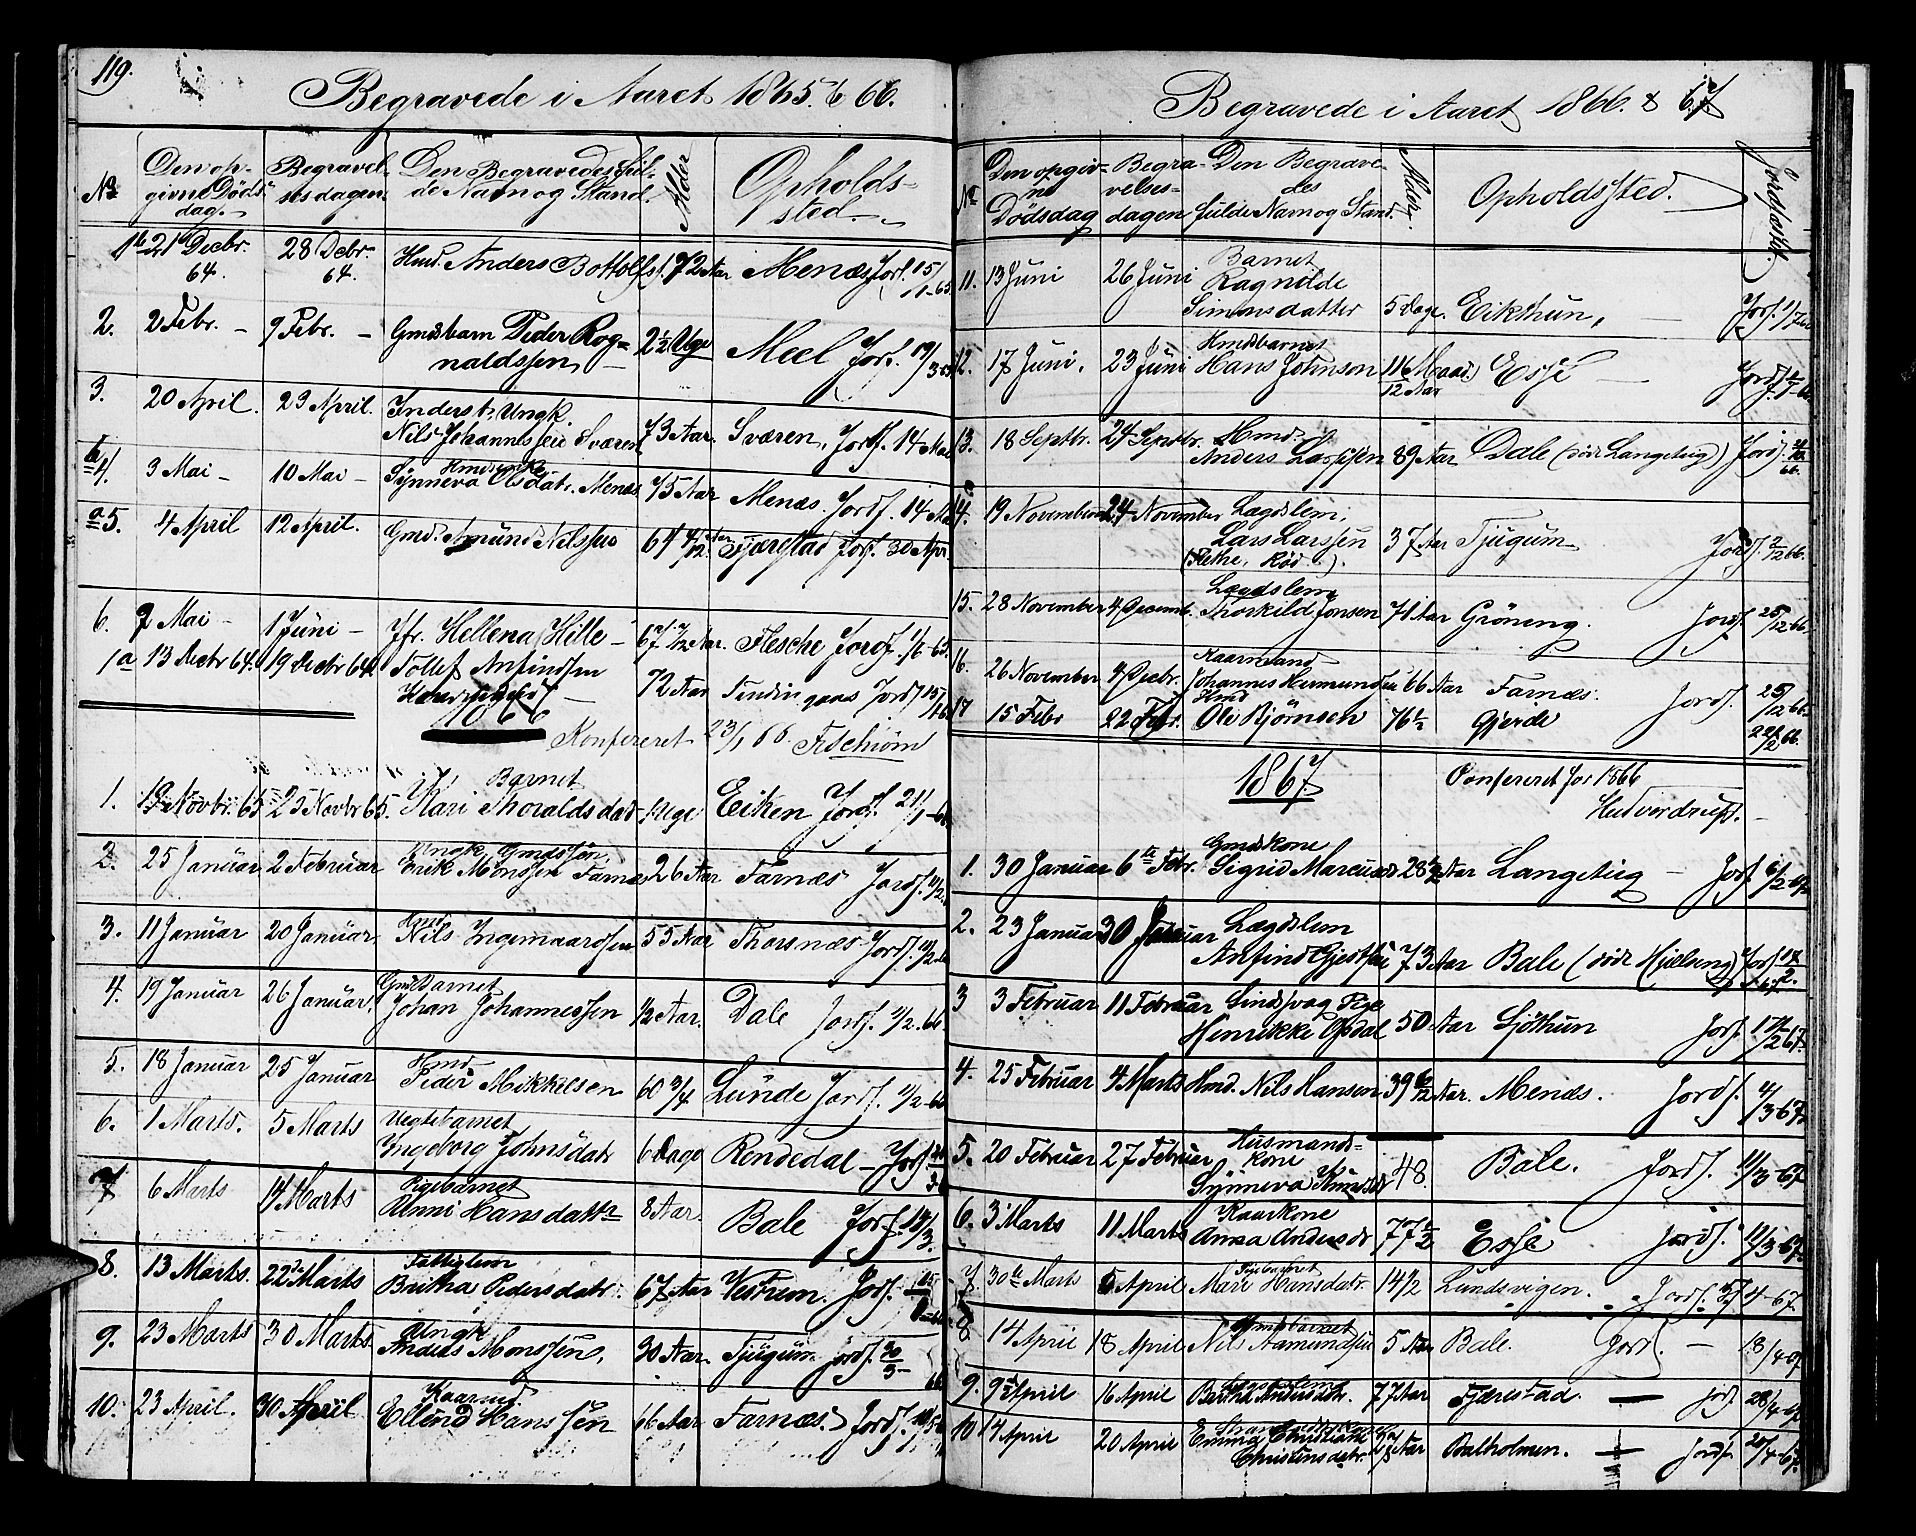 119.
Begravede i Aaret 1865 & 66.
No
Den op-
givne Døds-
dag.
Begravel-
sesdagen.
Den Begravedes ful-
de Navn og Stand.
Alder
Opholds-
sted.
1b 21 Decbr. 64. 28 Debr. 64. Hmd. Anders Bottolfs. 72 Aar Menæs Jorf. 15/1-65
2. 2 Febr. - 9 Febr. - Gmdsbarn Peder Rog-
naldssen 2½ Uge Meel Jorf. 19/3
3. 20 April. 29 April. Inderst, Ungk.
Nils Johannessen Sværen 73 Aar. Sværen, Jordf. 14 Mai
b 4. 3 Mai - 10 Mai - Kmdenke
Synneva Olsdatr. Menæs 75 Aar Menæs. Jordf. 14 Mai
a 5. 4 April 12 April. Gmd. Amund Nilssen 64 4/12 Aar Tjærestad Jorf. 30 Apr.
6. 7 Mai - 1 Juni - Jfr. Hellena Hille - 67 7/12 Aar. Flesche Jordf. 1/6-65.
1a 13 Decbr 64. 19 Decbr 64. Tollef Anfindsen
72 Aar Jordf 15/1
1866
Konfereret 23/1 66.
1. 19 Novbr. 65 25 Novbr 65. Barnet
Kari Thoraldsdatr 1 Uge Eiken Jordf. 21/1-66
2. 25 Januar 2 Februar Ungk. Gmdssøn.
Erik Monssen Farnæs 26 Aar Farnæs Jordf. 11/2.
3. 11 Januar 20 Januar. Hmd
Nils Ingemaardsen 55 Aar Thorsnæs Jordf. 11/2
4. 19 Januar 26 Januar. Gmdsbarnet
Johan Johannessen ½ Aar. Dale Jordf. 11/2.66
5. 18 Januar 25 Januar Hmd
Peder Mikkelsen 60 ¾ Lunde Jordf. 11/2-66
6. 1 Marts. 5 Marts Uegtebarnet
Ingeborg Johnsdatr 6 Dage Rendedal - Jordf
7 6 Marts 14 Marts Pigebarnet
Unni Hansdattr 8 Aar. Bale Jorf. 18/3.
8. 13 Marts. 22de Marts Fattiglem
Britha Pedersdatr. 67 Aar Vetrum. Jorf.
9. 23 Marts 30 Marts. Ungk
Anders Monssen. 30 Aar. Tjugum Jordf. 30/3-
10. 23 April. 30 April Kaarmd.
Ellend Hanssen 66 Aar Farnæs. Jordf.
Begravede i Aaret 1866. & 67
No
Den opgiv-
ne
Dødsdag
Begra-
velses-
dagen
Den Begrave-
des
fulde Navn og Stand.
Alder.
Opholdssted.
Jordfæstet.
11. 13 Juni 26 Juni Barnet
Ragnilde
Simonsdatter 5 Dage. Eikthun, Jorf. 1/7
12. 17 Juni. 23 Juni Hmdbarnet
Hans Johnson 11 Maad. 12 Aar Esse Jordf.
13. 18 Septbr. 24 Septbr. Hmd.
Anders Larssen 89 Aar Dale (født Langeteig) Jordf. 66.
14. 19 November 24 November Lægdslem,
Lars Larssen
37 Aar Tjugum Jordf. 2/12 66.
15. 28 November 4 Decemb. Lægdslem
Thorkild Jonsen 71 Aar Grøneng. Jordf. 25/12 66.
16. 26 November 4 Decbr. Kaarmand
Johannes Hermundsen 66 Aar Farnæs. Jordf. 25/12 66.
17 15 Febr 22 Febr. Hmd
Ole Bjørnsen 76½ Gjerde 22/2 66.
1867
Confereret for 1866
1. 30 Januar 6te Febr. Gmdskone
Sigrid Marcusdr 28½ Aar Langeteig - Jorf 6/2
2. 23 Januar 30 Januar Lægdslem
Anfind 73 Aar Bale (født Jorf 17/2.
3 3 Februar 11 Februar Sindsvag Pige
Henrikke Opdal 50 Aar Sjøthun Jorf. 17/2 67.
4. 25 Februar 4 Marts Hmd. Nils Hansen 39 6/12 Aar. Menæs. Jordf. 4/3-67
5. 20 Februar 27 Februar Husmands-
kone
Synneva 48. Bale. Jordf. 11/3-67
6. 3 Marts 11 Marts Kaarkone
Anna Andersdr 77½ Esse Jordf. 11/3-67
7 30te Marts 5 April Pigebarnet
Mari Hansdatr. 14½ Lundsvigen. Jordf. 4-67.
8. 14 April 18 April Gmdsbarnet
Nils Aamundsen 5 Aar Bale. Jorf. - 18/4-67
9. 9de April 16 April
Britha Andersdatr. 77 Aar Tjærestad. - Jorf. 28/4-67
10 14 April 20 April
Emma Christiane
Christensdatr. Aar Balholmen. Jordf. 20/4-67.